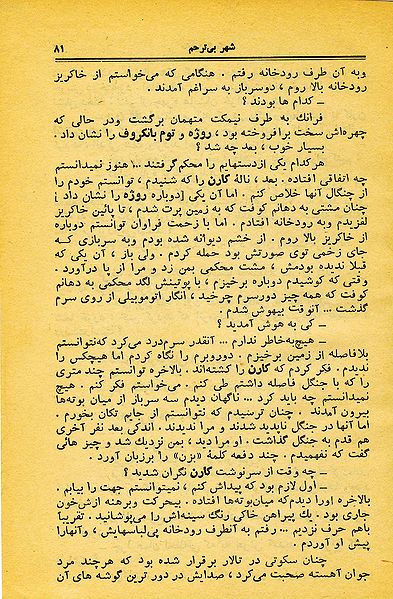 شهر بی‌ترحم
۸۱
وبه آن طرف رودخانه رفتم . هنگامی که می‌خواستم از خاکریز
رودخانه بالا روم ، دوسرباز به سراغم آمدند .
ــ کدام ها بودند ؟
فرانك به طرف نیمکت متهمان برگشت ودر حالی که
چهره‌اش سخت برافروخته بود ، روژه و توم بانکروف را نشان داد .
بسیار خوب ، بعد چه شد ؟
هرکدام یکی ازدستهایم را محکم‌گرفتند ... هنوز نمیدانستم
چه اتفاقی افتاده . بعد ، نالهٔ گارن را که شنیدم ، توانستم خودم را
از چنگال آنها خلاص کنم . اما آن یکی [دوباره روژه را نشان داد]
چنان مشتی به دهانم کوفت که به زمین پرت شدم ، تا پائین خاکریز
لغزیدم وبه رودخانه افتادم . اما با زحمت فراوان توانستم دوباره
از خاکریز بالا روم . از خشم دیوانه شده بودم وبه سربازی کــه
جای زخمی توی صورتش بود حمله کردم . ولی باز ، آن یکی که
قبلا ندیده بودمش ، مشت محکمی بمن زد و مرا از پا درآورد .
وقتی که کوشیدم دوباره برخیزم ، با پوتینش لگد محکمی به دهانم
کوفت که همه چیز دورسرم چرخید ، انگار اتوموبیلی از روی سرم
گذشت ... آنوقت بیهوش شدم .
ــ کی به هوش آمدید ؟
ــ هیچ‌به‌خاطر ندارم ... آنقدر سرم‌درد می‌کرد که‌نتوانستم
بلافاصله از زمین برخیزم . دوروبرم را نگاه کردم اما هیچکس را
ندیدم . فکر کردم که گارن را کشته‌اند . بالاخره توانستم چند متری
را که با جنگل فاصله داشتم طی کنم . می‌خواستم فکر کنم . هیچ
نمیدانستم چه باید کرد ... ناگهان دیدم سه سرباز از میان بوته‌ها
بیرون آمدند . چنان ترسیدم که نتوانستم از جایم تکان بخورم .
اما آنها در جنگل ناپدید شدند و مرا ندیدند . اندکی بعد نفر آخری
هم قدم به جنگل گذاشت . او مرا دید ، بمن نزدیك شد و چیز هائی
گفت که نفهمیدم . چند دفعه کلمهٔ «بزن» را برزبان آورد .
ــ چه وقت از سرنوشت گارن نگران شدید ؟
ــ اول لازم بود که پیداش کنم ، نمیتوانستم جهت را بیابم .
بالاخره اورا دیدم‌که میان‌بوته‌ها افتاده . بیحرکت وبرهنه ازش‌خون
جاری بود . یك پیراهن خاکی رنگ سینه‌اش را می‌پوشانید . تقریباً
باهم حرف نزدیم ... رفتم به آنطرف رودخانه پی‌لباسهایش ، وآنهارا
پیش او آوردم .
چنان سکوتی در تالار برقرار شده بود که هرچند مرد
جوان آهسته صحبت می‌کرد ، صدایش در دور ترین گوشه های آن